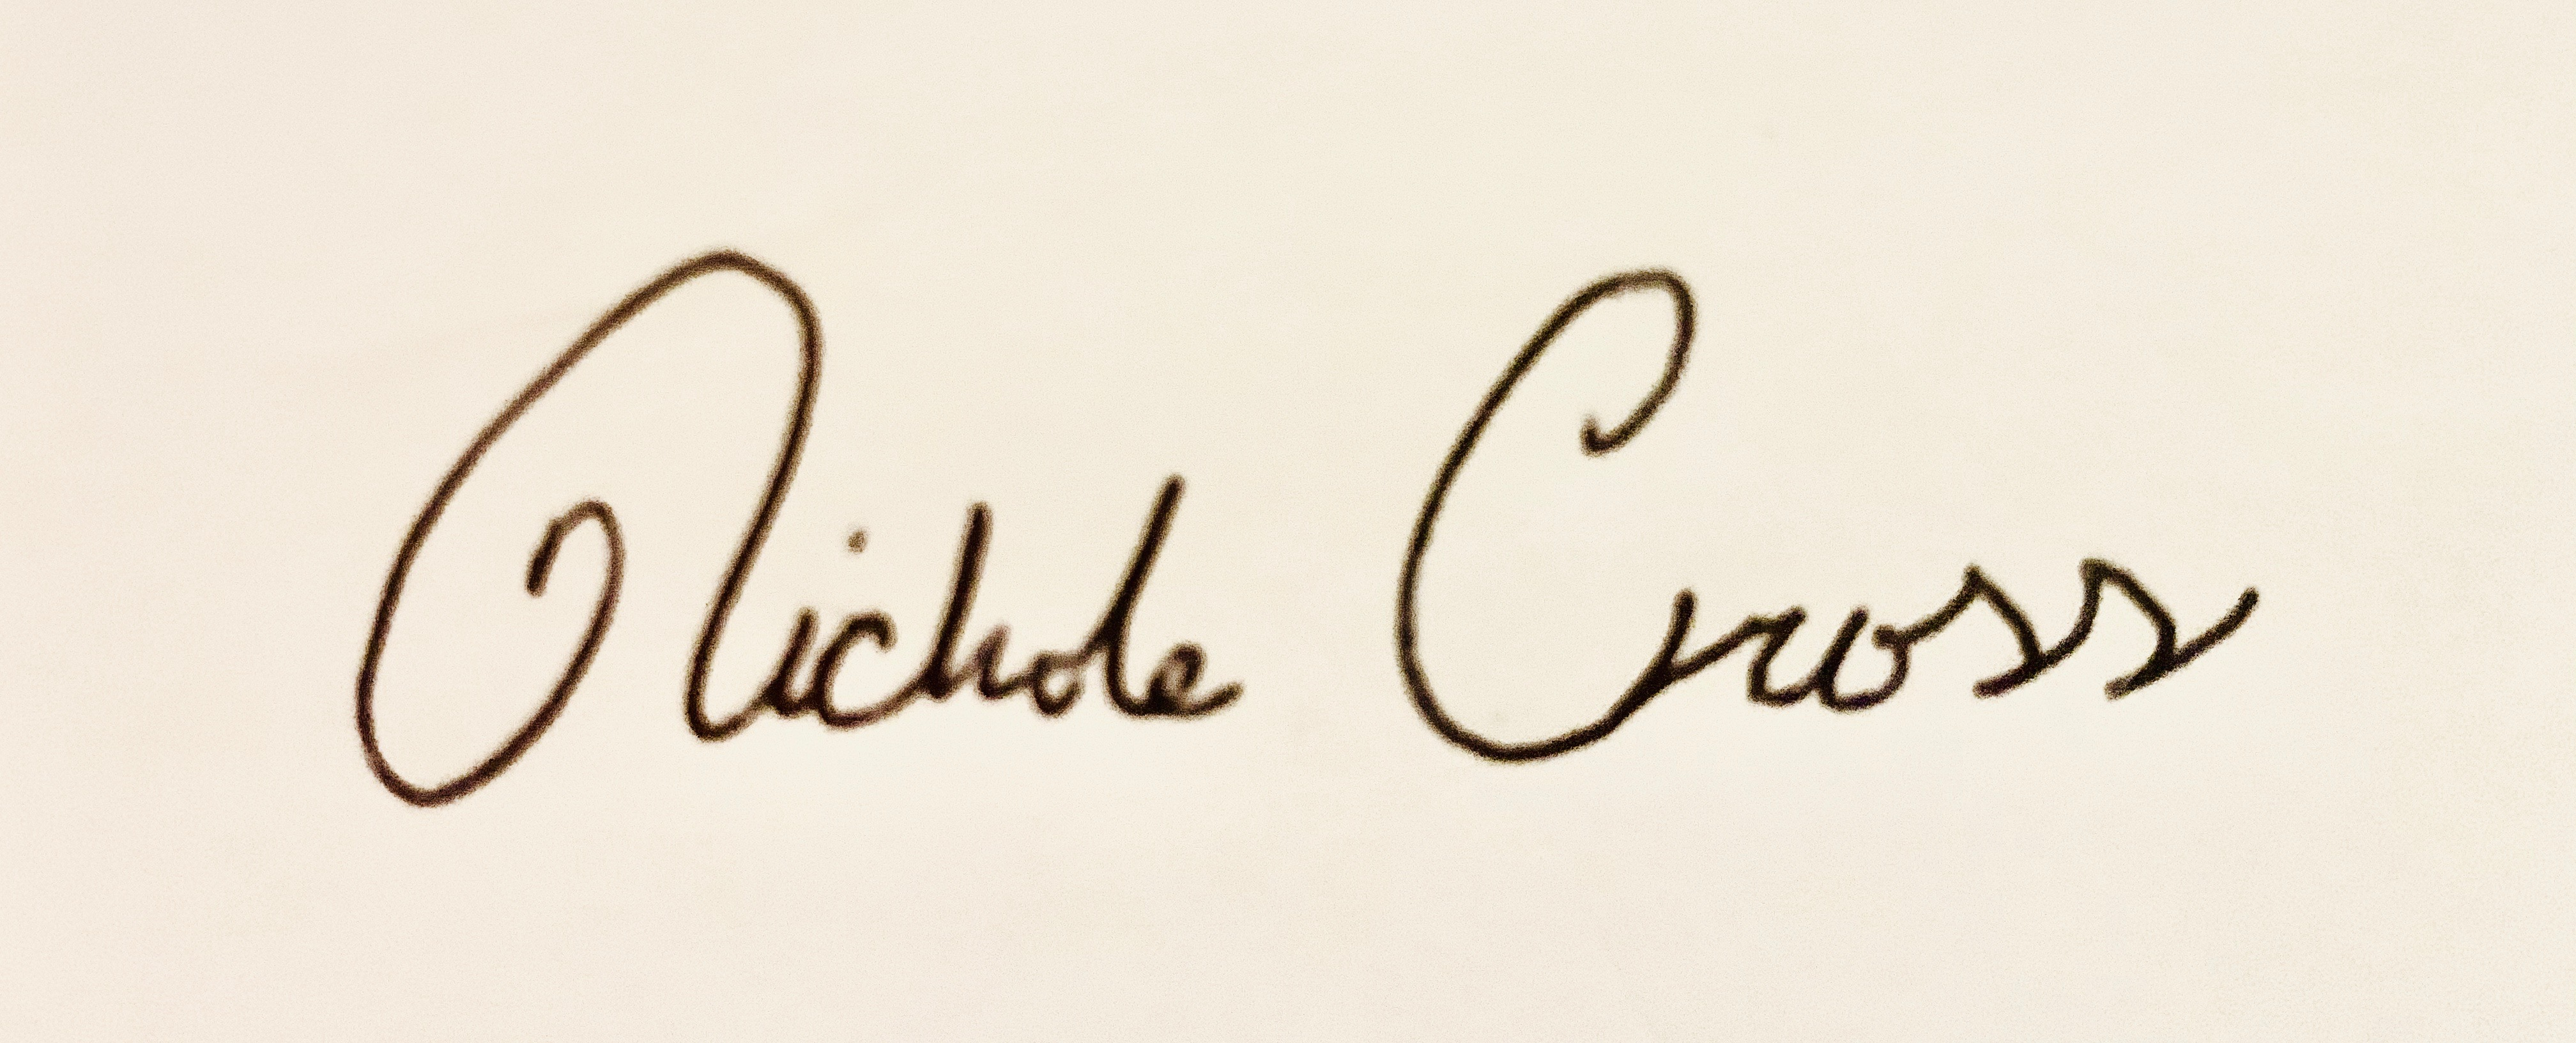 Nichole Cross